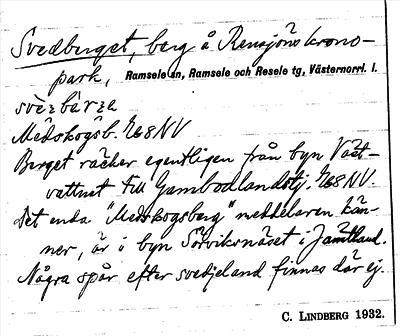 Svedberget, berg å Rensjöns krono-
park, Ramsele sn, Ramsele och Resele tg, Västernorrl. l.
Medskogsb. 768 NV
Berget räcker egentligen från byn Väst-
vattnet till Gambodlandstj. 768 NV.
Det enda "Medskogsberg" meddelaren kän-
ner, är i byn Sörviksnäset i Jämtland.
Några spår efter svedjeland finnas där ej.
C. LINDBERG 1932.